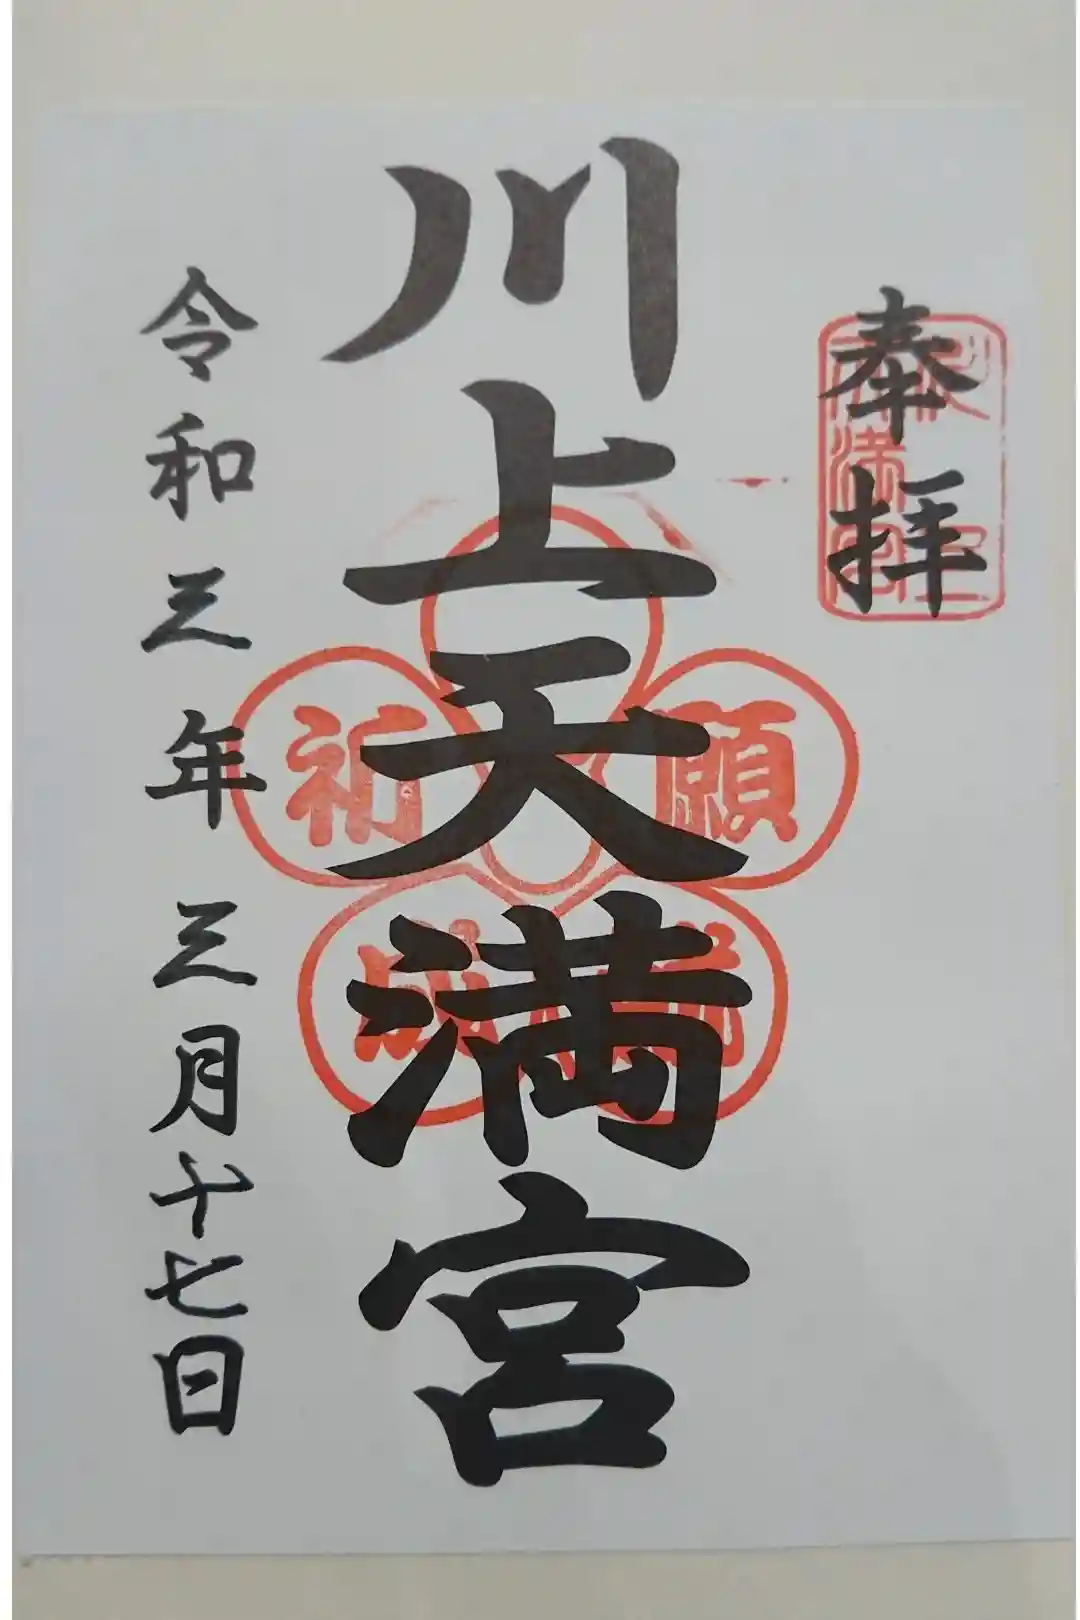 奉拝
川上天満宮
令和三年三月十七日
祈
願
成